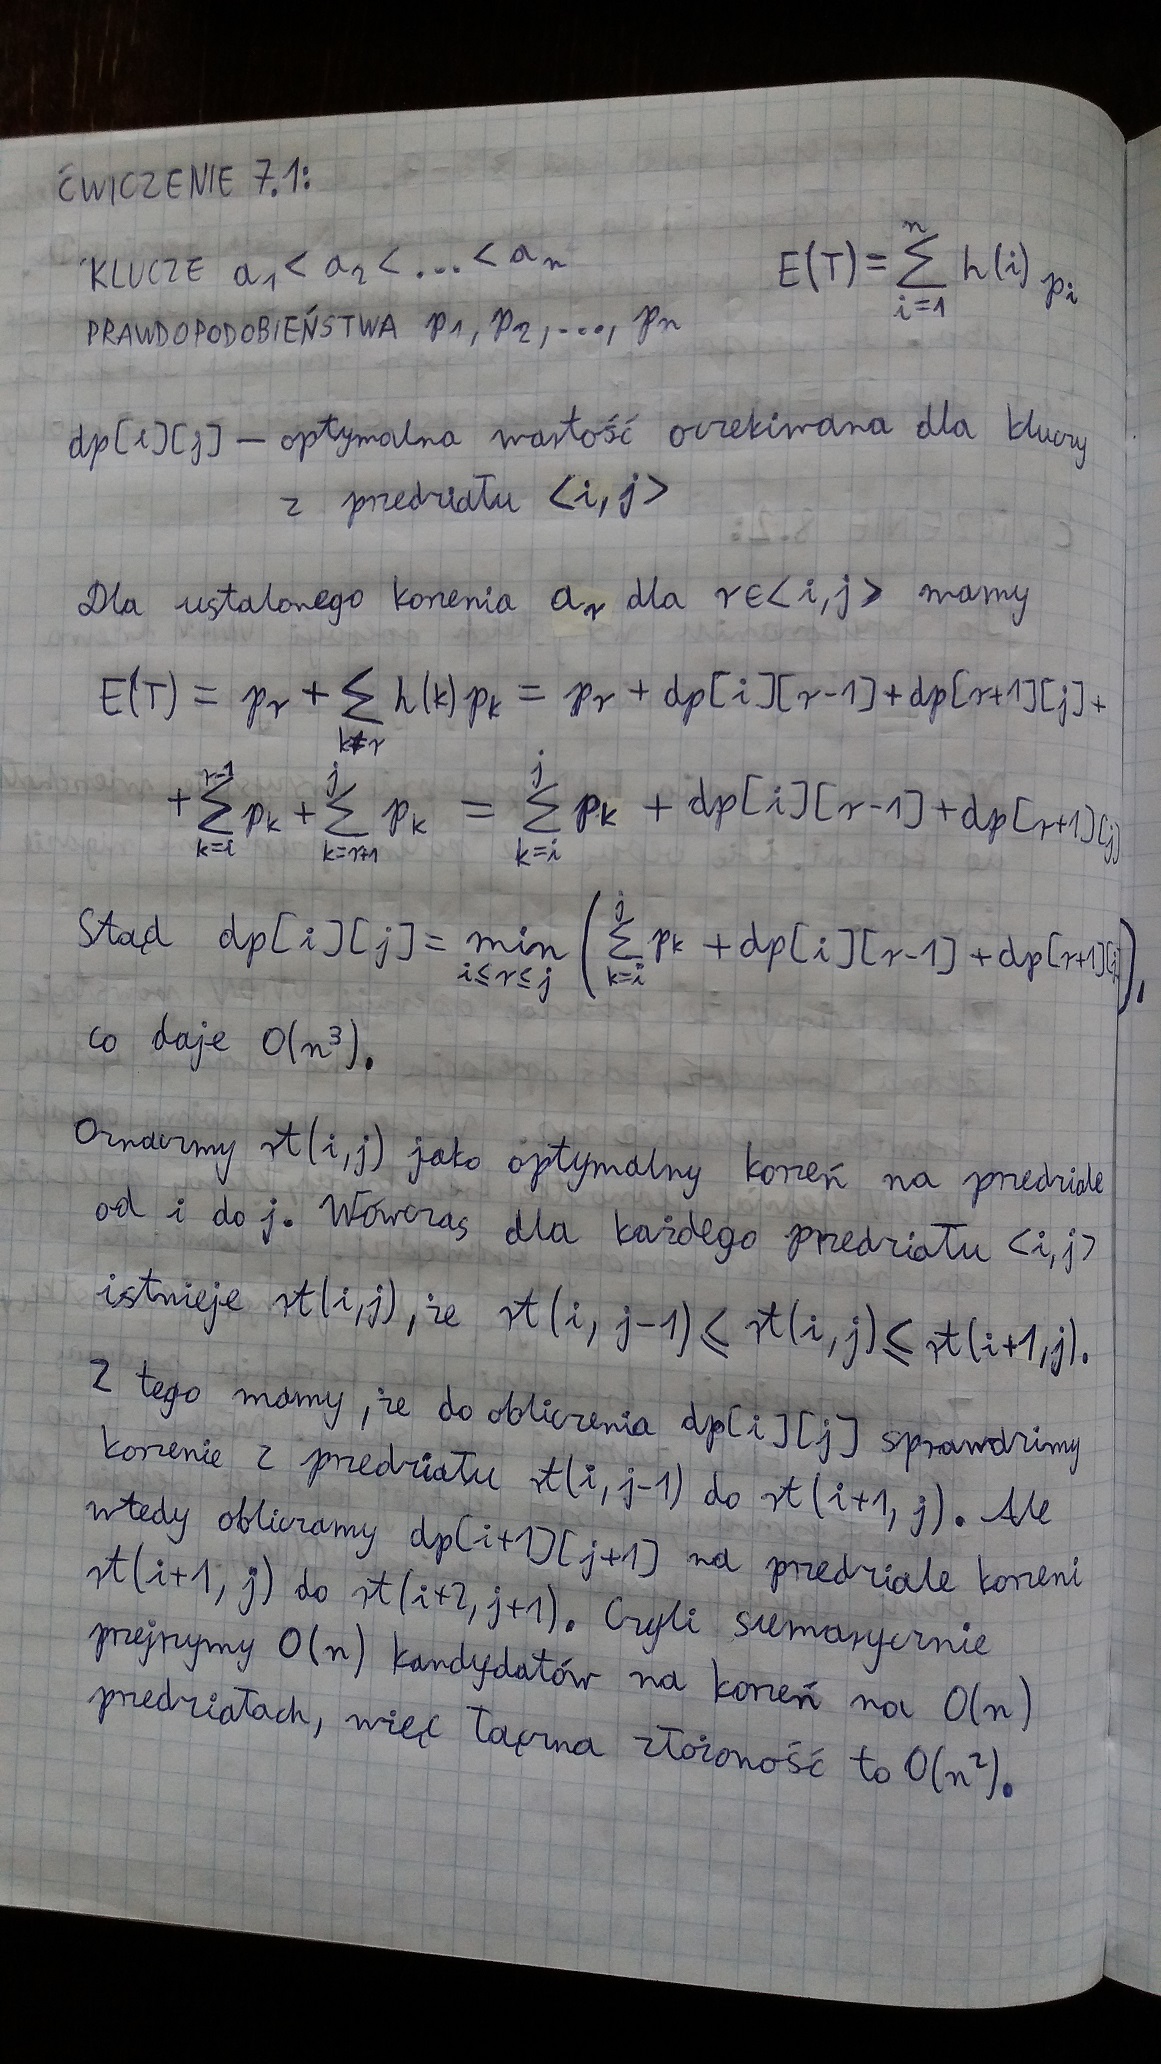 ĆWICZENIE 7.1:
KLUCZE a₁ < a₂ < ... < aₙ
E(T) = ∑_{i=1}^{n} h(i) pᵢ
PRAWDOPODOBIEŃSTWA p₁, p₂, ..., pₙ
dp[i][j] — optymalna wartość oczekiwana dla kluczy
z przedziału <i, j>
Dla ustalonego korzenia aᵣ dla r∈<i, j> mamy
E(T) = pᵣ + ∑_{k≠r} h(k) pₖ = pᵣ + dp[i][r-1] + dp[r+1][j] +
+ ∑_{k=i}^{r-1} pₖ + ∑_{k=r+1}^{j} pₖ = ∑_{k=i}^{j} pₖ + dp[i][r-1] + dp[r+1][j]
Stąd dp[i][j] = min_{i≤r≤j} (∑_{k=i}^{j} pₖ + dp[i][r-1] + dp[r+1][j]),
co daje O(n³).
Oznaczmy rt(i, j) jako optymalny korzeń na przedziale
od i do j. Wówczas dla każdego przedziału <i, j>
istnieje rt(i, j), że rt(i, j-1) ≤ rt(i, j) ≤ rt(i+1, j).
Z tego mamy, że do obliczenia dp[i][j] sprawdzimy
korzenie z przedziału rt(i, j-1) do rt(i+1, j). Ale
wtedy obliczamy dp[i+1][j+1] na przedziale korzeni
rt(i+1, j) do rt(i+2, j+1). Czyli sumarycznie
przejrzymy O(n) kandydatów na korzeń na O(n)
przedziałach, więc łączna złożoność to O(n²).